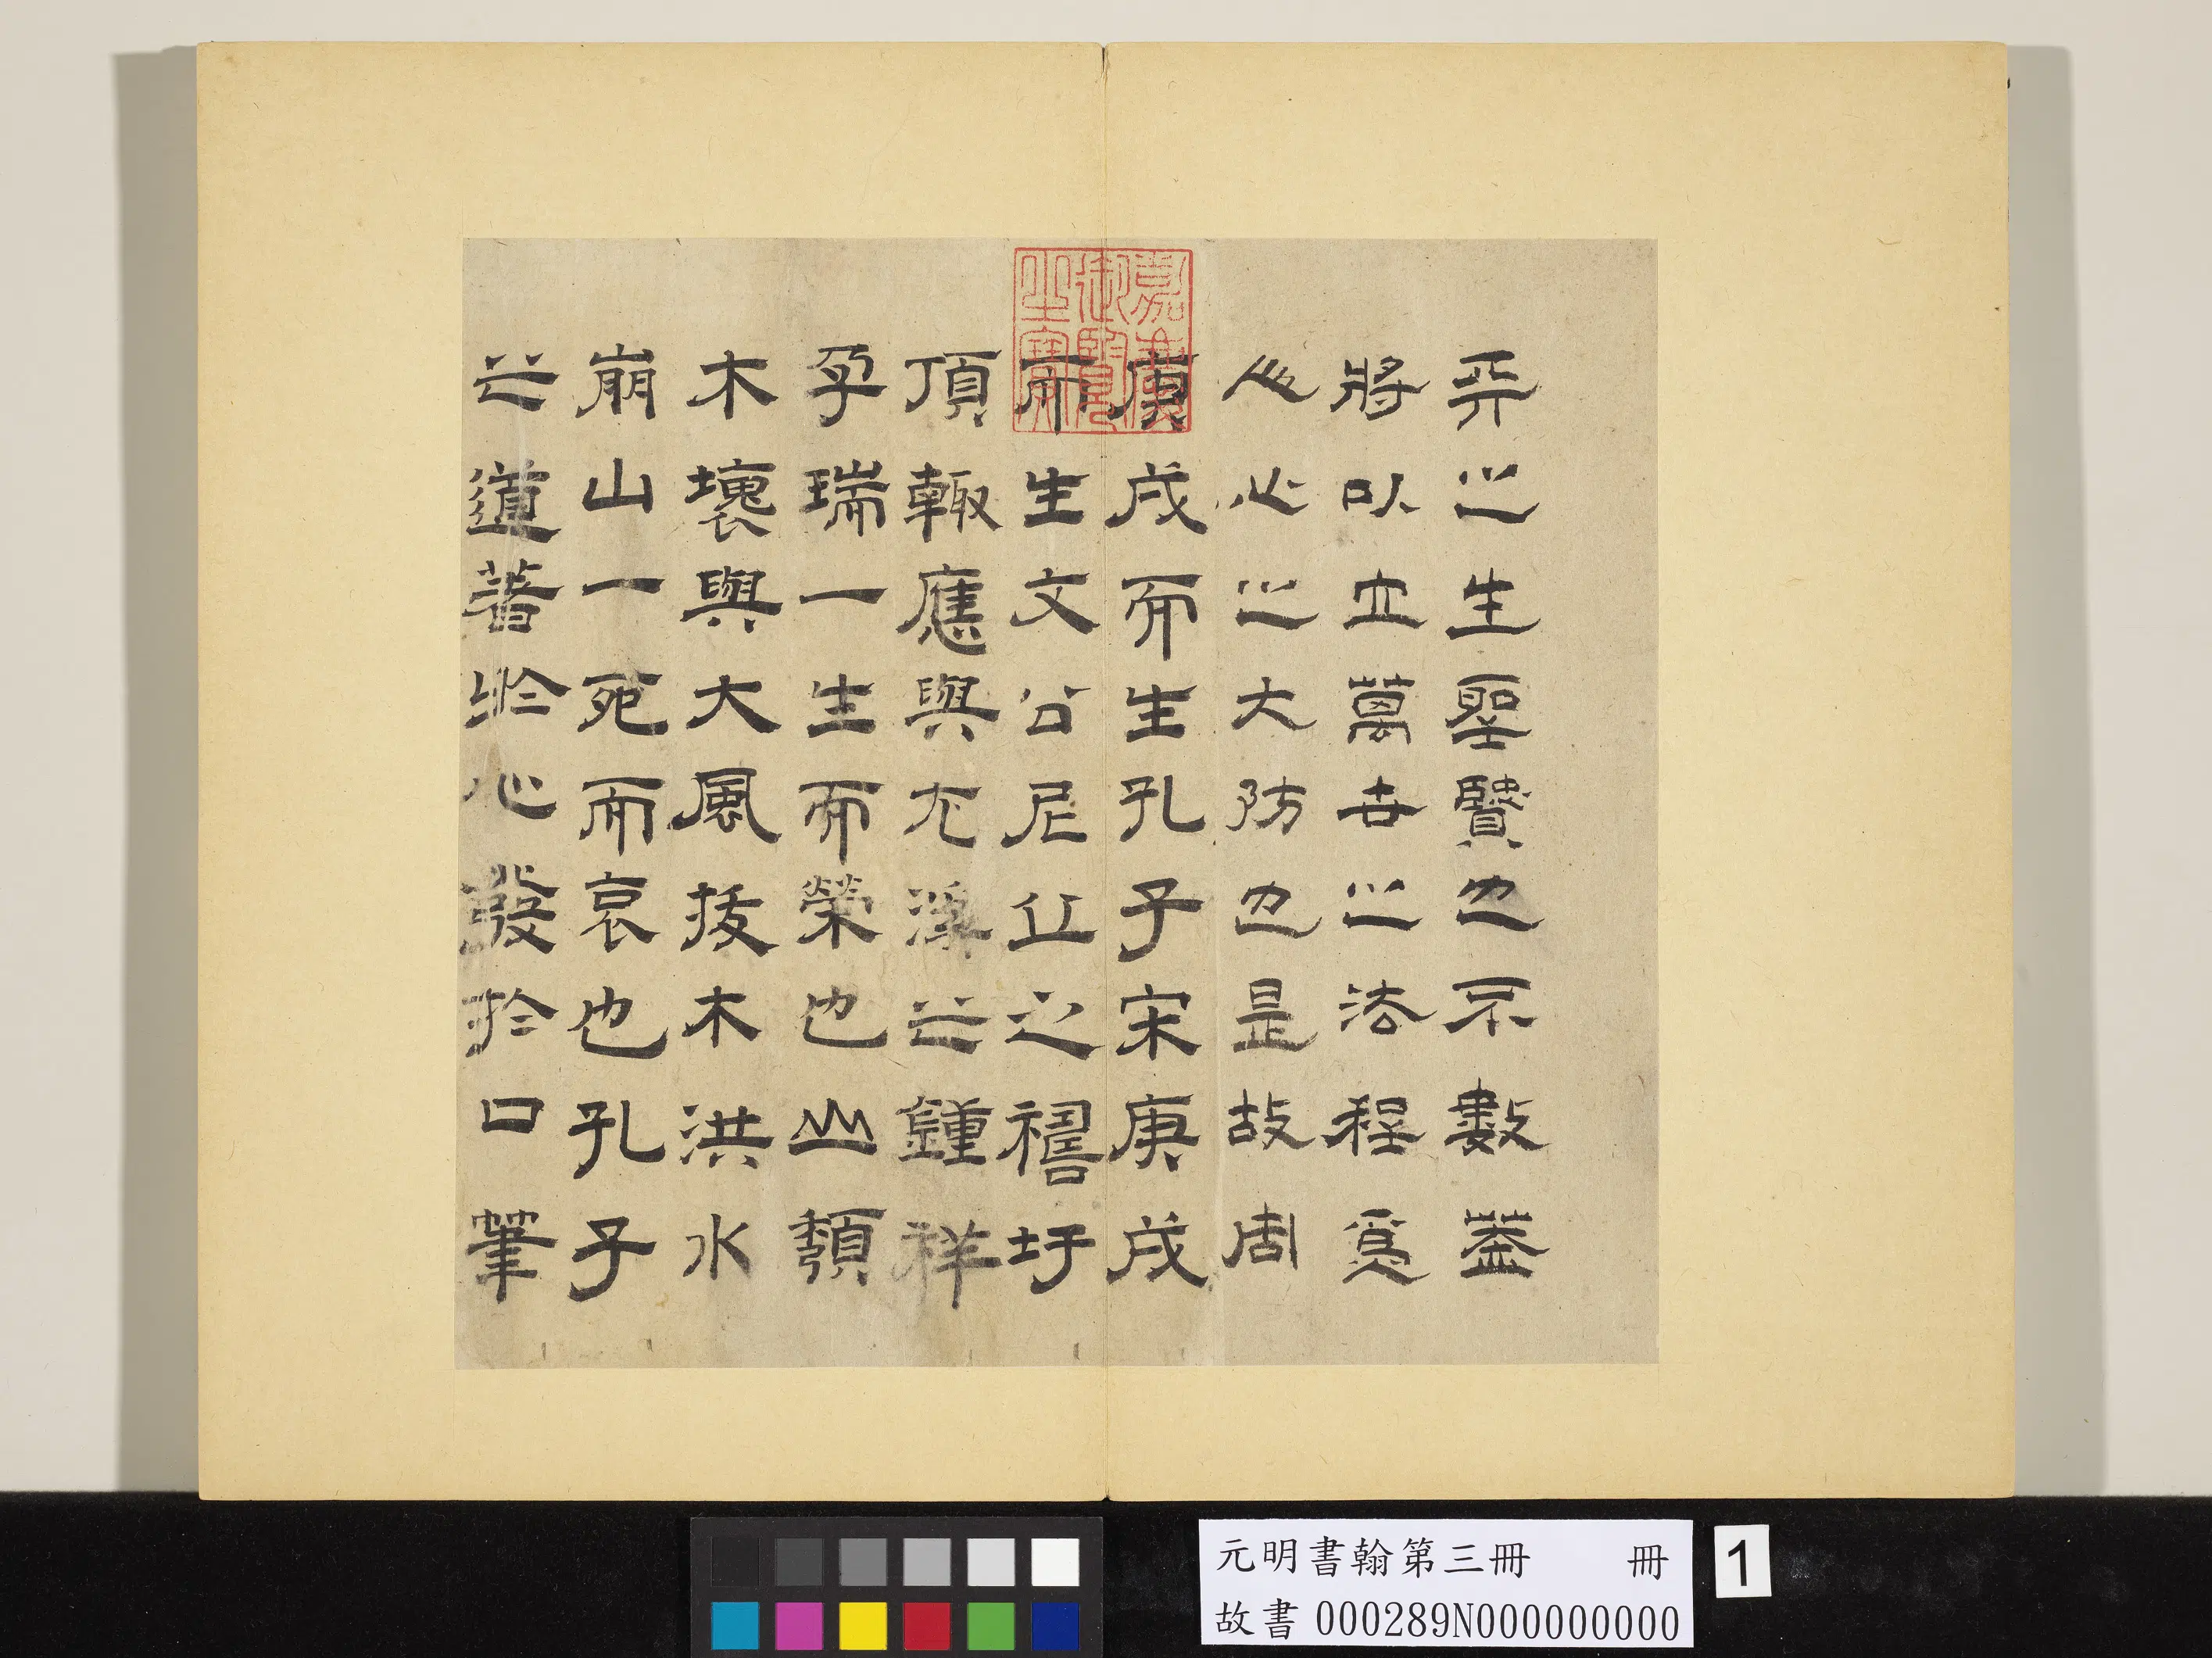 天之生聖賢也不數蓋
將以立萬世之法程為
人心之大防也是故周
庚戌而生孔子宋庚戌
而生文公尼丘之禱圩
頂輒應與尤溪之鍾祥
孕瑞一生而榮也山頹
木壞與大風拔木洪水
崩山一死而哀也孔子
之道著於心發於口筆
嘉慶
御覽
之寶
元明書翰第三冊 冊
故書 000289N000000000
1